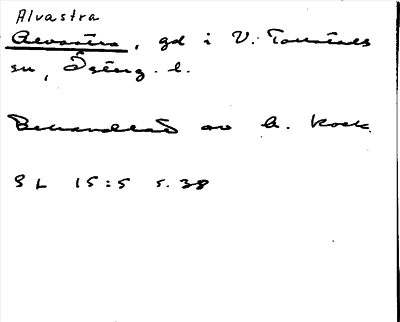 Alvastra
Alvastra, gd i V. Tollstads
sn, Östg. l.
Behandlad av A. Kock.
S L 15:5 s. 38